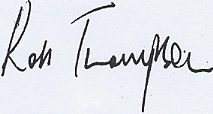 Rob Thompson